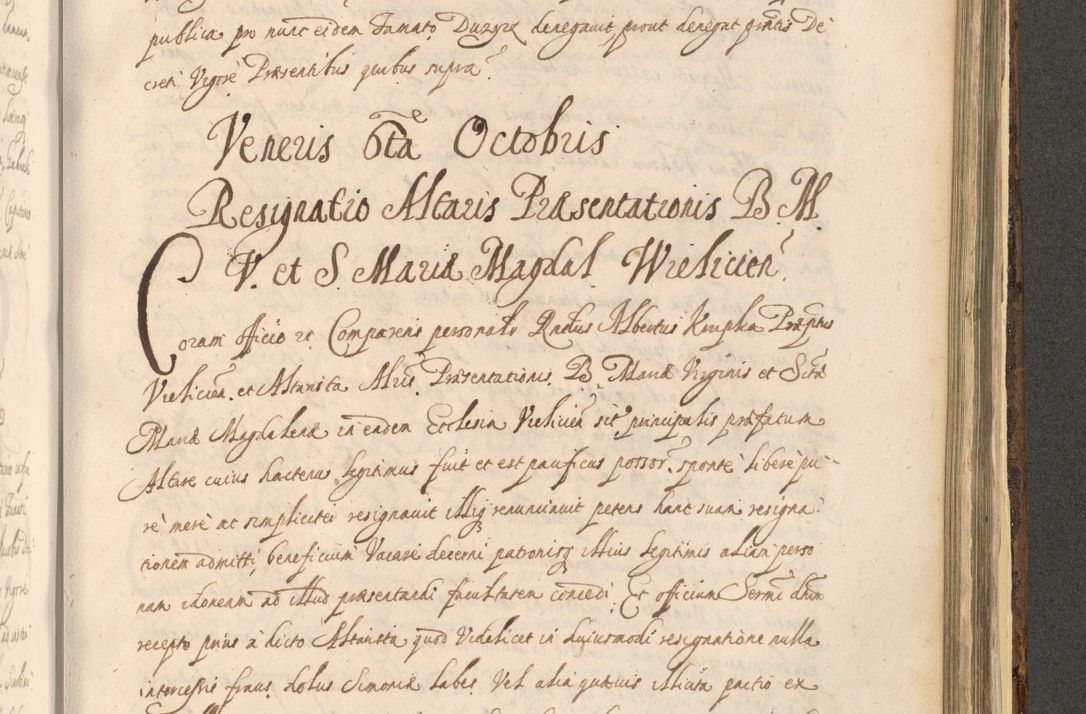 publica pro nunc eidem Famato Duzyx denegavit prout denegat pñtis De
creti Vigore Præsentibus quibus supra.
Veneris 6ta Octobris
Resignatio Altaris Præsentationis B. M.
V. et S. Mariæ Magdal. Wielicien.
Coram officio etc. Comparens personalr Rndus Albertus Krupka Præptus
Vielicien. et Altarista Altris Præsentationis B. Mariæ Virginis et Sctæ
Mariæ Magdalenæ in eadem Ecclesia Vielicien sit principalis præfatum
Altare cuius hactenus legitimus fuit et est pacificus possor. sponte libere pu
re mere ac simpliciter resignavit illiq renunciavit petens hanc suam resigna
tionem admitti, beneficium Vacare decerni patronisq illius legitimis aliam perso
nam idoneam ad illud præsentandi facultatem concedi. Et officium
recepto prius a dicto Altarista quod Videlicet in huiusmodi resignatione nulla
intercessit fraus dolus Simoniæ labes Vel alia quævis illicita pactio ex